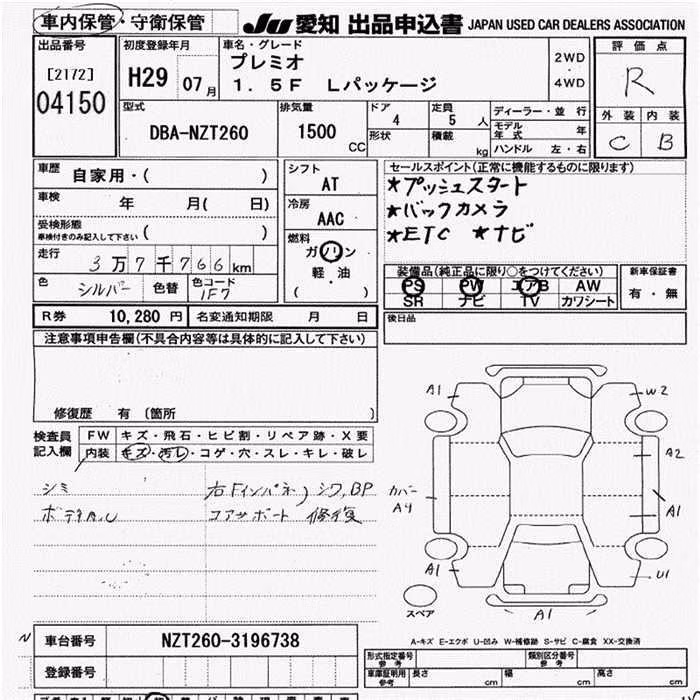 車内保管・守衛保管 JU 愛知 出品申込書 JAPAN USED CAR DEALERS ASSOCIATION
出品番号
[2172]
04150
初度登録年月
H29 07月
車名・グレード
プレミオ
1.5F Lパッケージ
2WD
・
4WD
評価点
R
外装 内装
C B
型式
DBA-NZT260
排気量
1500 CC
ドア
4
形状
定員
5 人
積載
kg
ディーラー・並行
モデル年式 年
ハンドル 左・右
車歴
自家用・( )
車検 年 月( 日)
受検形態
車検付きのみ記入して下さい ( )
走行
3万7千766km
色
シルバー
色替
色コード
1F7
シフト
AT
冷房
AAC
燃料
ガソリン
軽・油
( )
セールスポイント(正常に機能するものに限ります)
★プッシュスタート
★バックカメラ
★ETC ★ナビ
装備品(純正品に限り○をつけてください)
PS PW エアB AW
SR ナビ TV カワシート
新車保証書
有・無
R券 10,280円 名変通知期限 月 日
後日品
注意事項申告欄(不具合内容等は具体的に記入して下さい)
修復歴 有 〔箇所 〕
検査員
記入欄
FW キズ・飛石・ヒビ割・リペア跡・X要
内装 キズ・汚レ・コゲ・穴・スレ・キレ・破レ
シミ
右Fインパネ)シワ,BP
コアサポート 修復
A1
W2
A2
カバー
A4
A1
A1
U1
A1
スペア
A-キズ E-エクボ U-凹み W-補修跡 S-サビ C-腐食 XX-交換済
N
車台番号 NZT260-3196738
登録番号
形式指定番号
参考
類別区分番号
参考
車庫証明用
参考
長さ cm 幅 cm 高さ cm